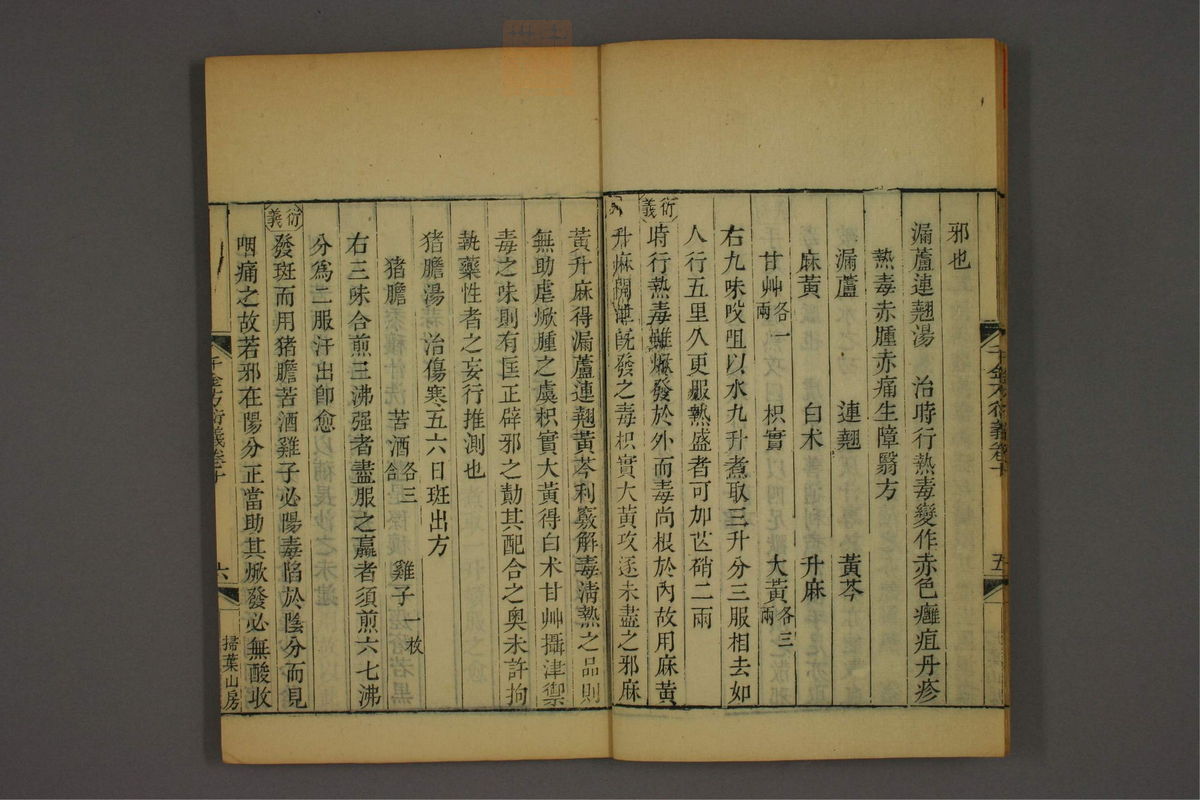 邪也
漏蘆連翹湯　治時行熱毒變作赤色癰疽丹疹
熱毒赤腫赤痛生障翳方
漏蘆　連翹　黃芩
麻黃　白术　升麻
甘艸各一兩　枳實　大黃各三兩
右九味㕮咀以水九升煮取三升分三服相去如
人行五里久更服熱盛者可加芒硝二兩
衍義
時行熱毒雖焮發於外而毒尚根於內故用麻黃
升麻開旣發之毒枳實大黃攻逐未盡之邪麻
千金方衍義卷十　五
黃升麻得漏蘆連翹黃芩利竅解毒清熱之品則
無助虐焮腫之虞枳實大黃得白术甘艸攝津禦
毒之味則有匡正辟邪之勣其配合之奥未許拘
執藥性者之妄行推測也
猪膽湯　治傷寒五六日斑出方
猪膽　苦酒各三合　雞子一枚
右三味合煎三沸强者盡服之羸者須煎六七沸
分爲二服汗出卽愈
衍義
發斑而用猪膽苦酒雞子必陽毒䧟於陰分而見
咽痛之故若邪在陽分正當助其焮發必無酸收
千金方衍義卷十　六　掃葉山房